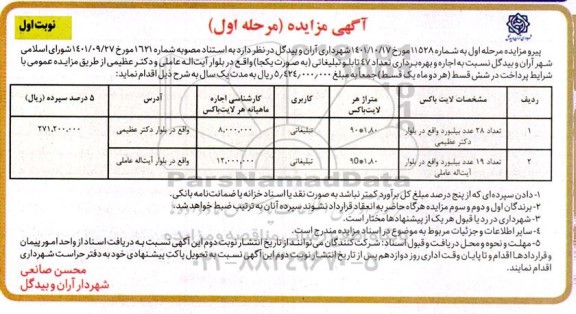 آگهی مزایده (مرحله اول)
نوبت اول
پیرو مزایده مرحله اول به شماره ۱۱۵۲۸ مورخ ۱۴۰۱/۱۰/۱۷ شهرداری آران و بیدگل در نظر دارد به استناد مصوبه شماره ۱۶۲۱ مورخ ۱۴۰۱/۰۹/۲۷ شورای اسلامی
شهر آران و بیدگل نسبت به اجاره و بهره‌برداری تعداد ۴۷ تابلو تبلیغاتی (به صورت یکجا) واقع در بلوار آیت‌اله عاملی و دکتر عظیمی از طریق مزایده عمومی با
شرایط پرداخت در شش قسط (هر دو ماه یک قسط) جمعاً به مبلغ ۵,۴۲۴,۰۰۰,۰۰۰ ریال به مدت یک سال به شرح ذیل اقدام نماید:
ردیف مشخصات لایت باکس متراژ هر لایت‌باکس کاربری کارشناسی اجاره ماهیانه هر لایت‌باکس آدرس ۵ درصد سپرده (ریال)
۱ تعداد ۲۸ عدد بیلبورد واقع در بلوار دکتر عظیمی ۱.۸۰*۹۰ تبلیغاتی ۸,۰۰۰,۰۰۰ واقع در بلوار دکتر عظیمی ۲۷۱,۲۰۰,۰۰۰
۲ تعداد ۱۹ عدد بیلبورد واقع در بلوار آیت‌اله عاملی ۱.۸۰*۹۰ تبلیغاتی ۱۲,۰۰۰,۰۰۰ واقع در بلوار آیت‌اله عاملی
۱- دادن سپرده‌ای که از پنج درصد مبلغ کل برآورد کمتر نباشد به صورت نقد یا اسناد خزانه یا ضمانت‌نامه بانکی.
۲- برندگان اول و دوم و سوم مزایده هرگاه حاضر به انعقاد قرارداد نشوند سپرده آنان به ترتیب ضبط خواهد شد.
۳- شهرداری در رد یا قبول هر یک از پیشنهادها مختار است.
۴- سایر اطلاعات و جزئیات مربوط به موضوع در اسناد مزایده مندرج است.
۵- مهلت و نحوه و محل دریافت و قبول اسناد: شرکت‌کنندگان می‌توانند از تاریخ انتشار نوبت دوم این آگهی نسبت به دریافت اسناد از واحد امور پیمان
و قراردادها اقدام و تا پایان وقت اداری روز دوازدهم پس از تاریخ انتشار نوبت دوم این آگهی نسبت به تحویل پاکت پیشنهادی خود به دفتر حراست شهرداری
اقدام نمایند.
محسن صانعی
شهردار آران و بیدگل
ParsNamadData
۰۲۱-۸۸۳۴۹۶۷۰-۵